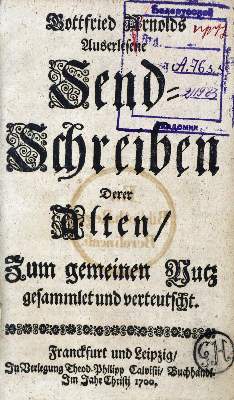 Gottfried Arnolds
Auserlesene
Send=
Schreiben
Derer
Alten/
Zum gemeinen Nutz
gesammlet und verteutscht.
Franckfurt und Leipzig/
In Verlegung Theod. Philipp Calvisii/ Buchhändl.
Im Jahr Christi 1700.